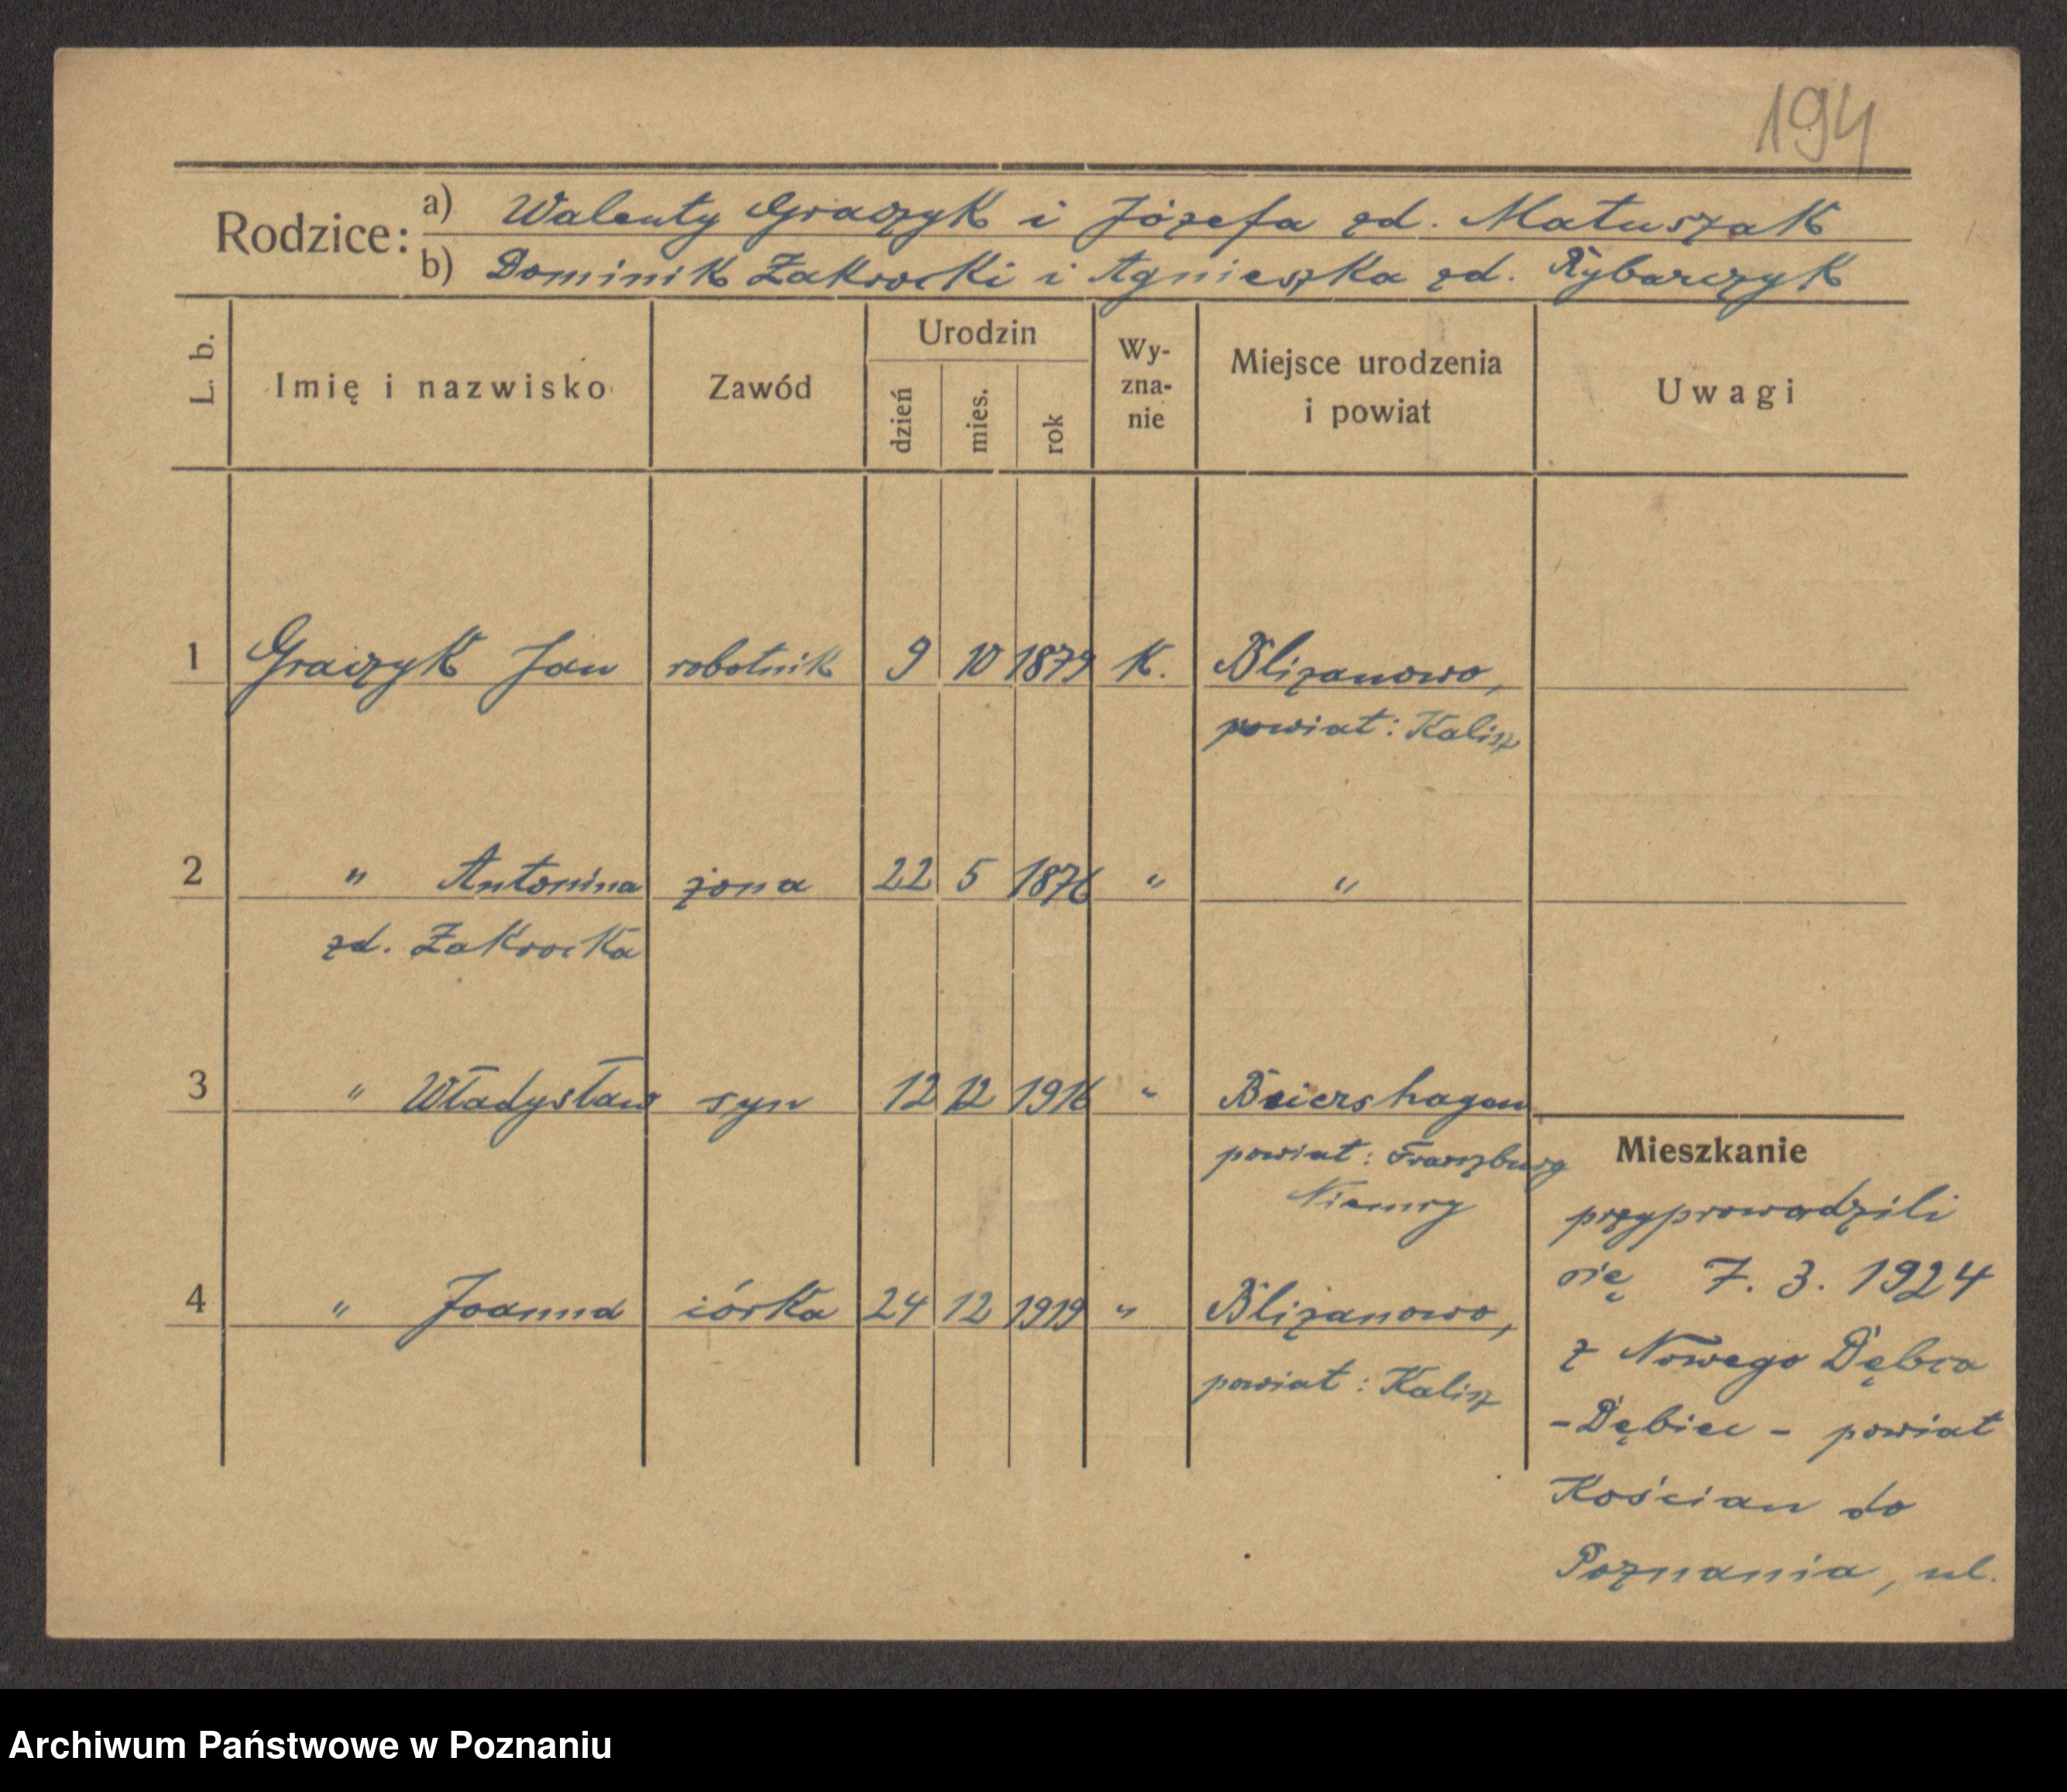 194
Rodzice: a) Walenty Graczyk i Józefa zd. Matuszak
b) Dominik Zakrocki i Agnieszka zd. Rybarczyk
L. b. Imię i nazwisko Zawód Urodzin dzień mies. rok Wy-zna-nie Miejsce urodzenia i powiat Uwagi
1 Graczyk Jan robotnik 9 10 1879 K. Blizanowo,
powiat: Kalisz
2 " Antonina żona 22 5 1876 " "
zd. Zakrocka
3 " Władysław syn 12 12 1916 " Beiershagen
powiat: Franzburg
Niemcy
4 " Joanna córka 24 12 1919 " Blizanowo,
powiat: Kalisz
Mieszkanie
przyprowadzili
się 7. 3. 1924
z Nowego Dębca
-Dębiec- powiat
Kościan do
Poznania, ul.
Archiwum Państwowe w Poznaniu